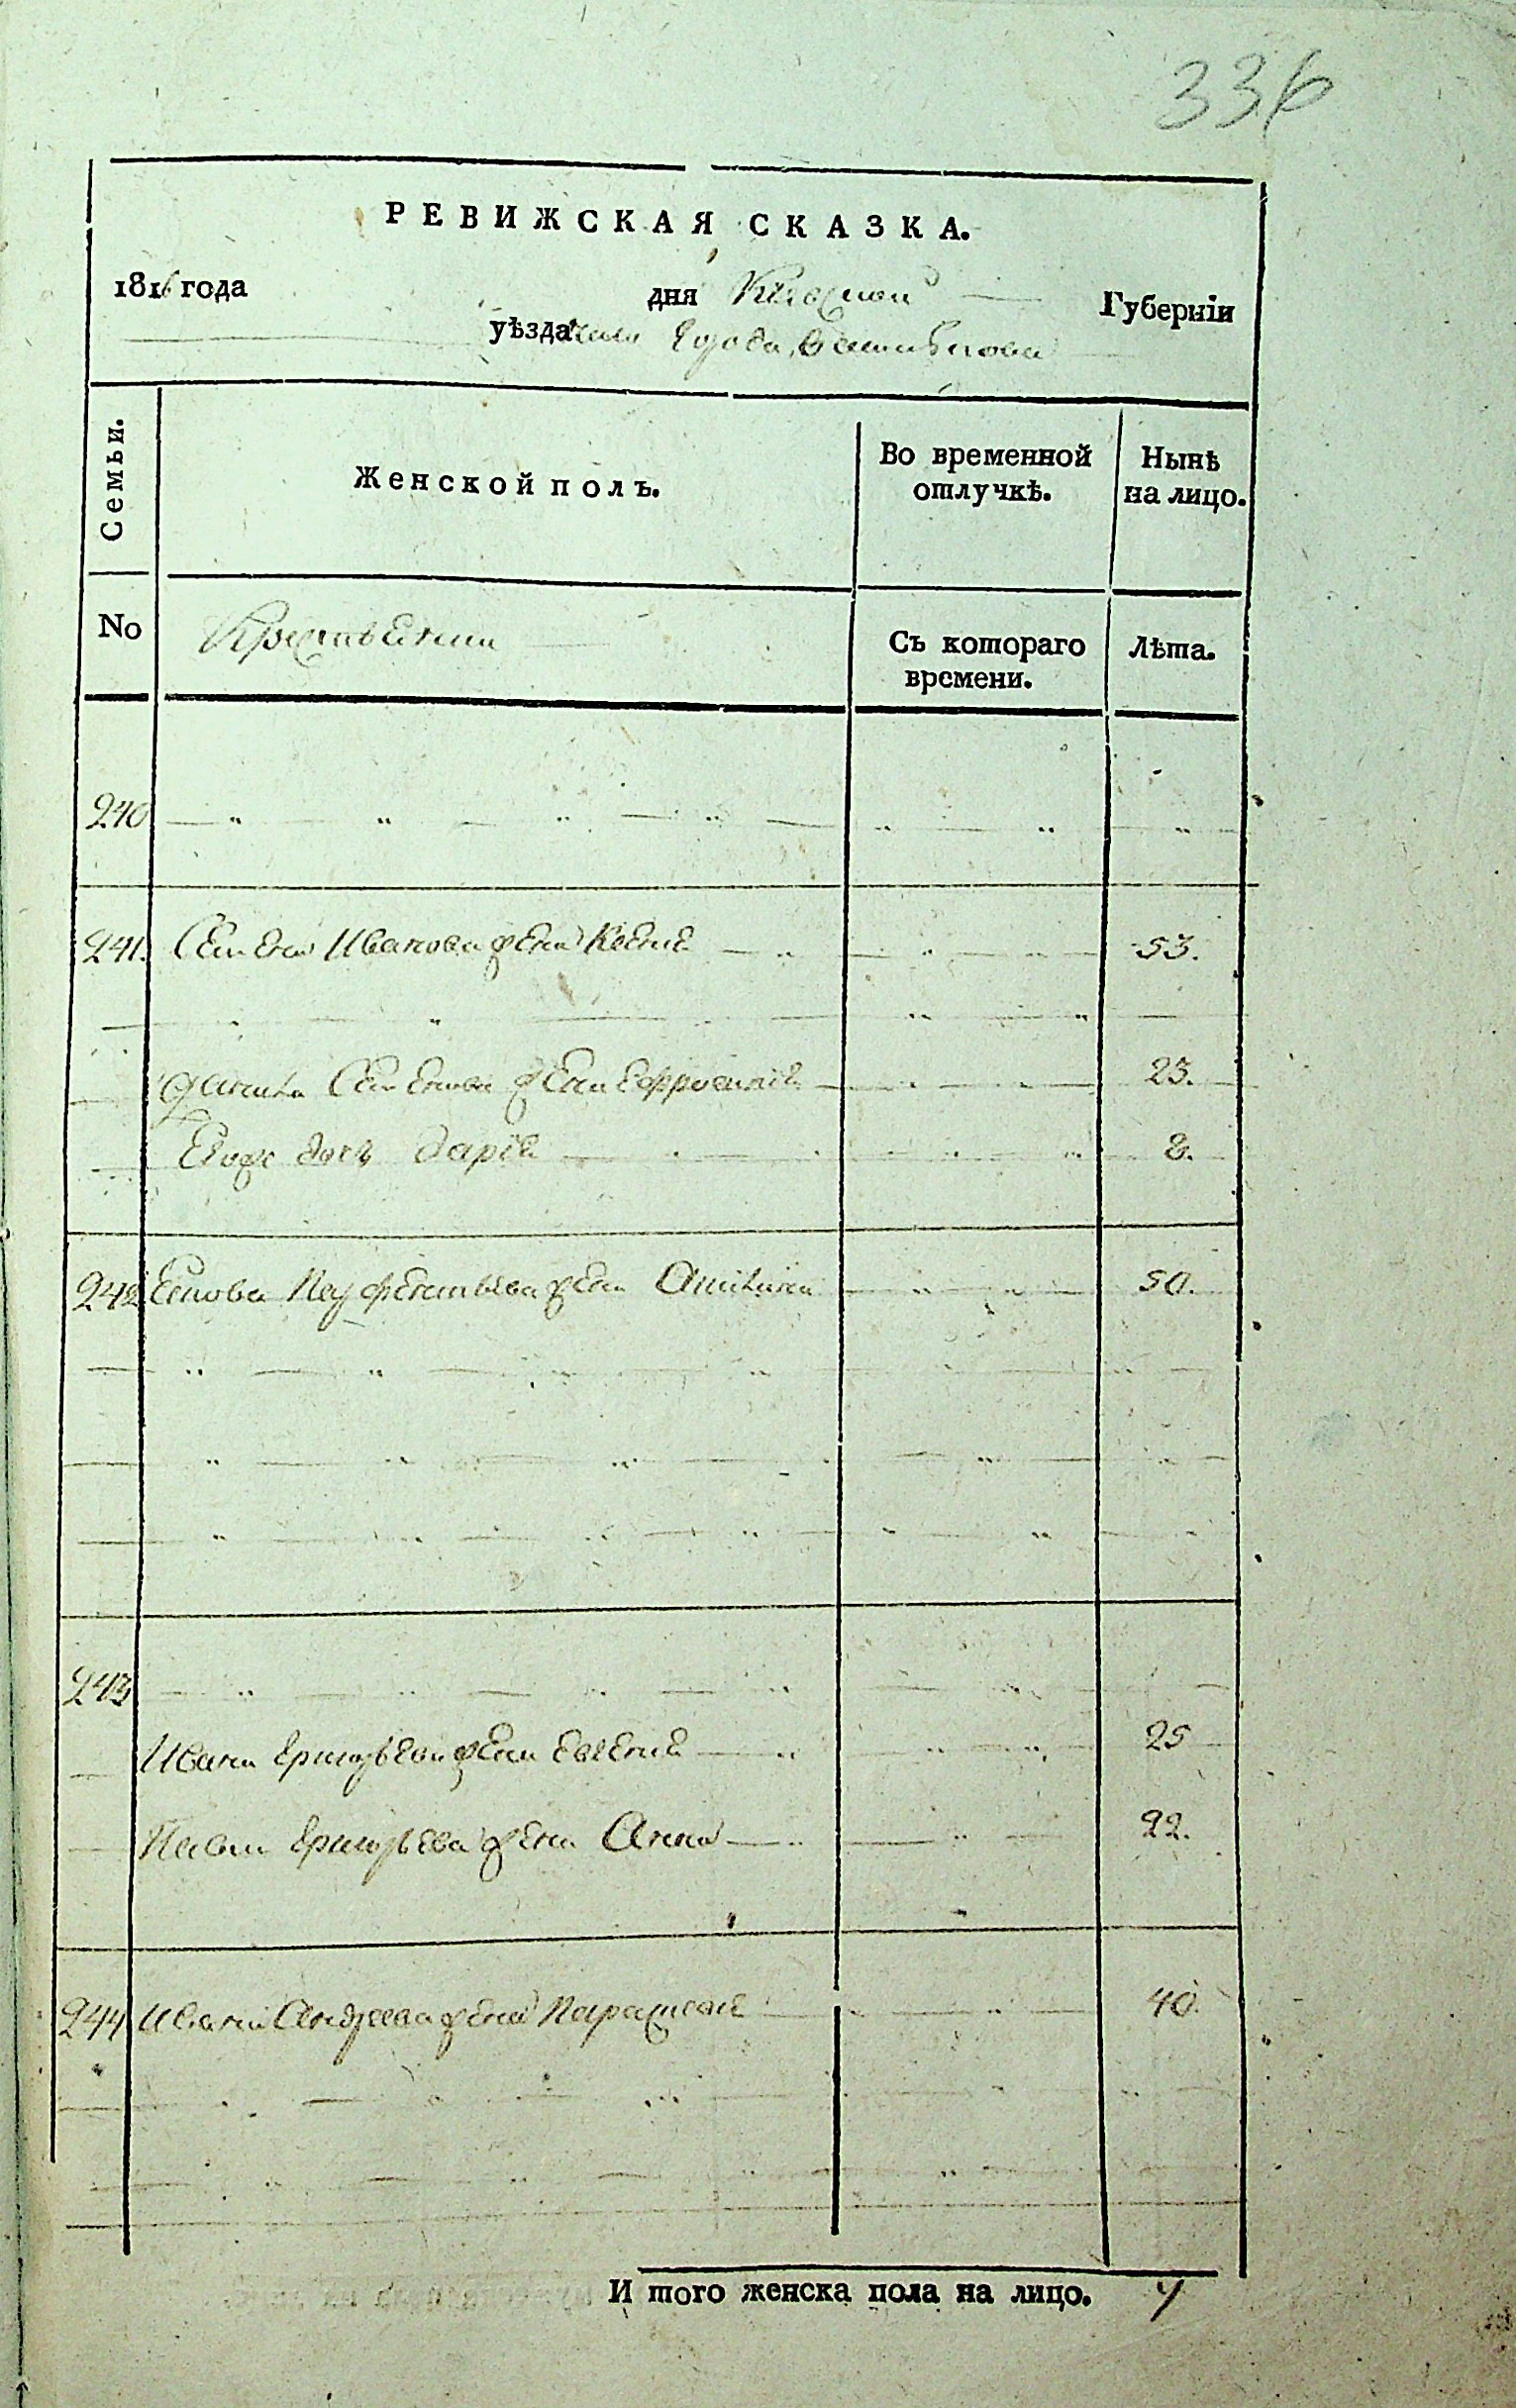 336
РЕВИЖСКАЯ СКАЗКА.
1816 года дня Губерніи
уѣзда города
Семьи.
Женской полъ.
Во временной отлучкѣ.
Нынѣ на лицо.
No
Съ котораго времени.
Лѣта.
240
241. Семена Иванова жена Ксенія 53.
Семенова жена Ефросинія 23.
Его же дочь Дарія 8.
242 жена 50.
243
Ивана Григорьева жена Евгенія 25
Павла Григорьева жена Анна 22.
244 Ивана Андреева жена Параскевія 40.
И того женска пола на лицо. 7